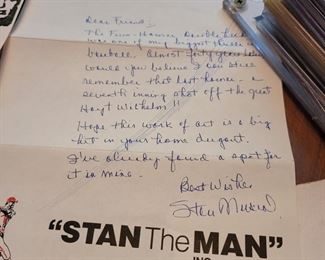 Dear Friend:
The Five-Homer, Double header
was one of my biggest thrills in
baseball. Almost forty years later
would you believe I can still
remember that last homer - a
seventh inning shot off the great
Hoyt Wilhelm!!
Hope this work of art is a big
hit in your home dugout.
I've already found a spot for
it in mine.
Best Wishes
Stan Musial
"STAN The MAN"
INC.